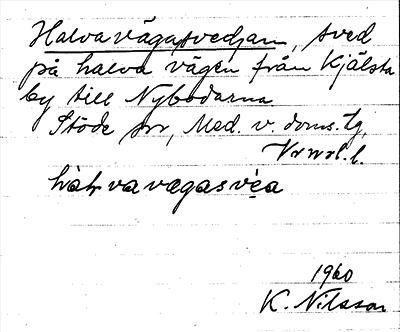 Halvavägasvedjan, sved
på halva vägen från Kjälsta
by till Nybodarna
Stöde sn, Med. v. doms. tg,
Vrnrl. l.
hàlvavægasve̤a
1960
K. Nilsson